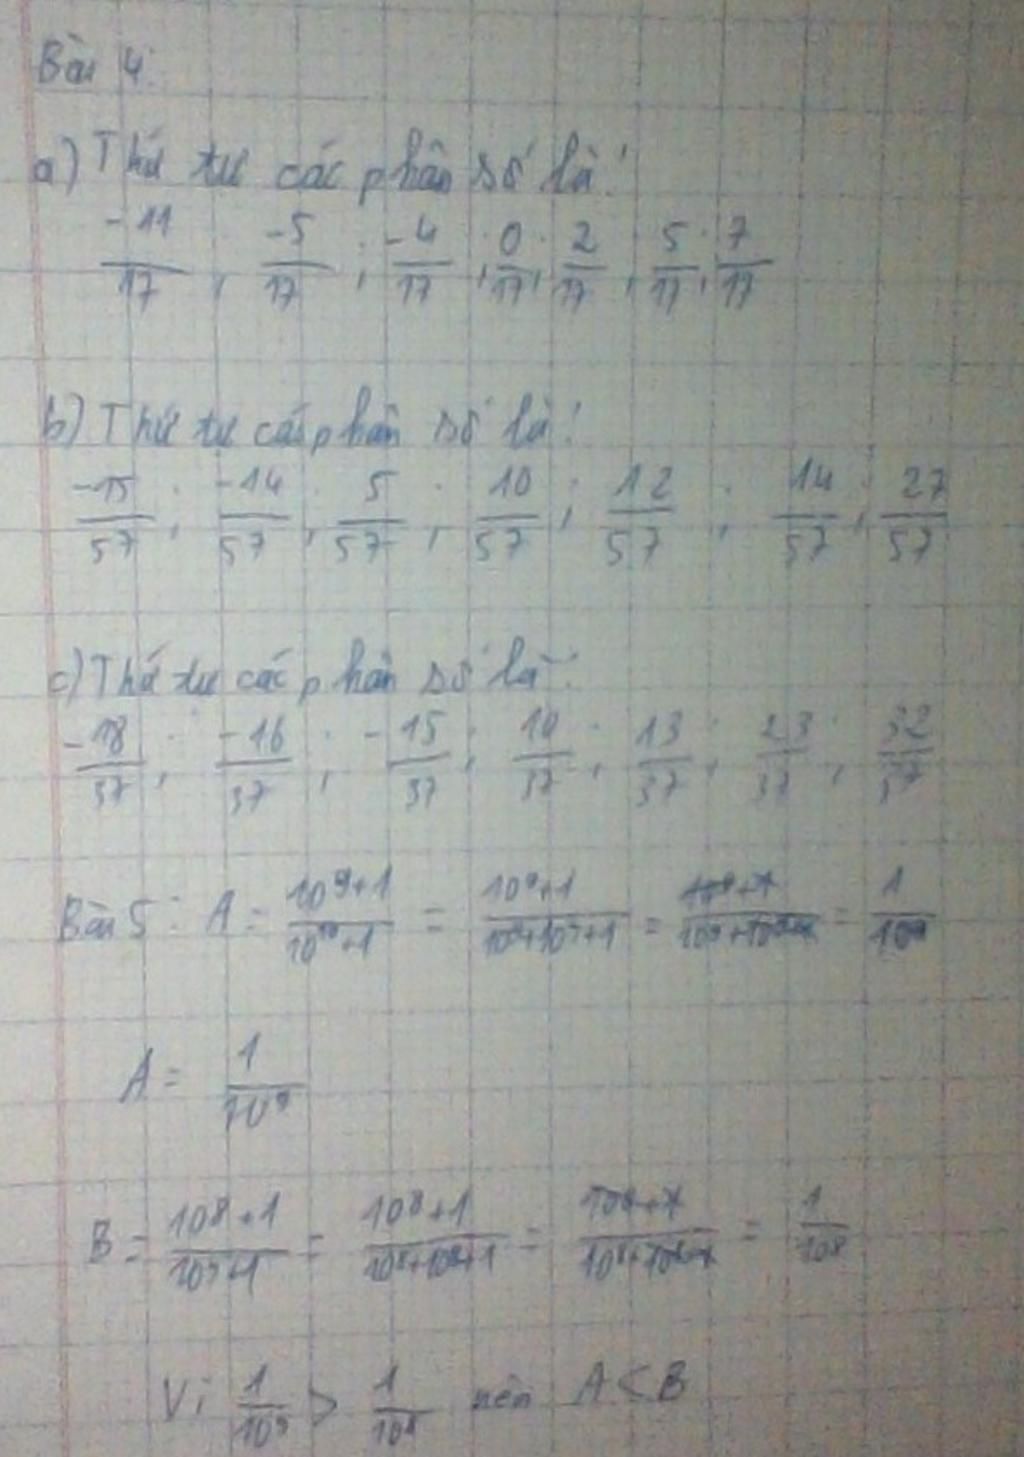 Bài 4:
a) Thứ tự các phân số là:
-11/17 ; -5/17 ; -4/17 ; 0/17 ; 2/17 ; 5/17 ; 7/17
b) Thứ tự các phân số là:
-15/57 ; -14/57 ; 5/57 ; 10/57 ; 12/57 ; 14/57 ; 27/57
c) Thứ tự các phân số là:
-18/37 ; -16/37 ; -15/37 ; 10/37 ; 13/37 ; 23/37 ; 32/37
Bài 5: A = 10⁹+1/10¹⁰+1 = 10⁹+1/ = = 1/10⁹
A = 1/10⁹
B = 10⁸+1/10⁹+1 = 10⁸+1/ = = 1/10⁸
Vì 1/10⁹ > 1/10⁸ nên A < B